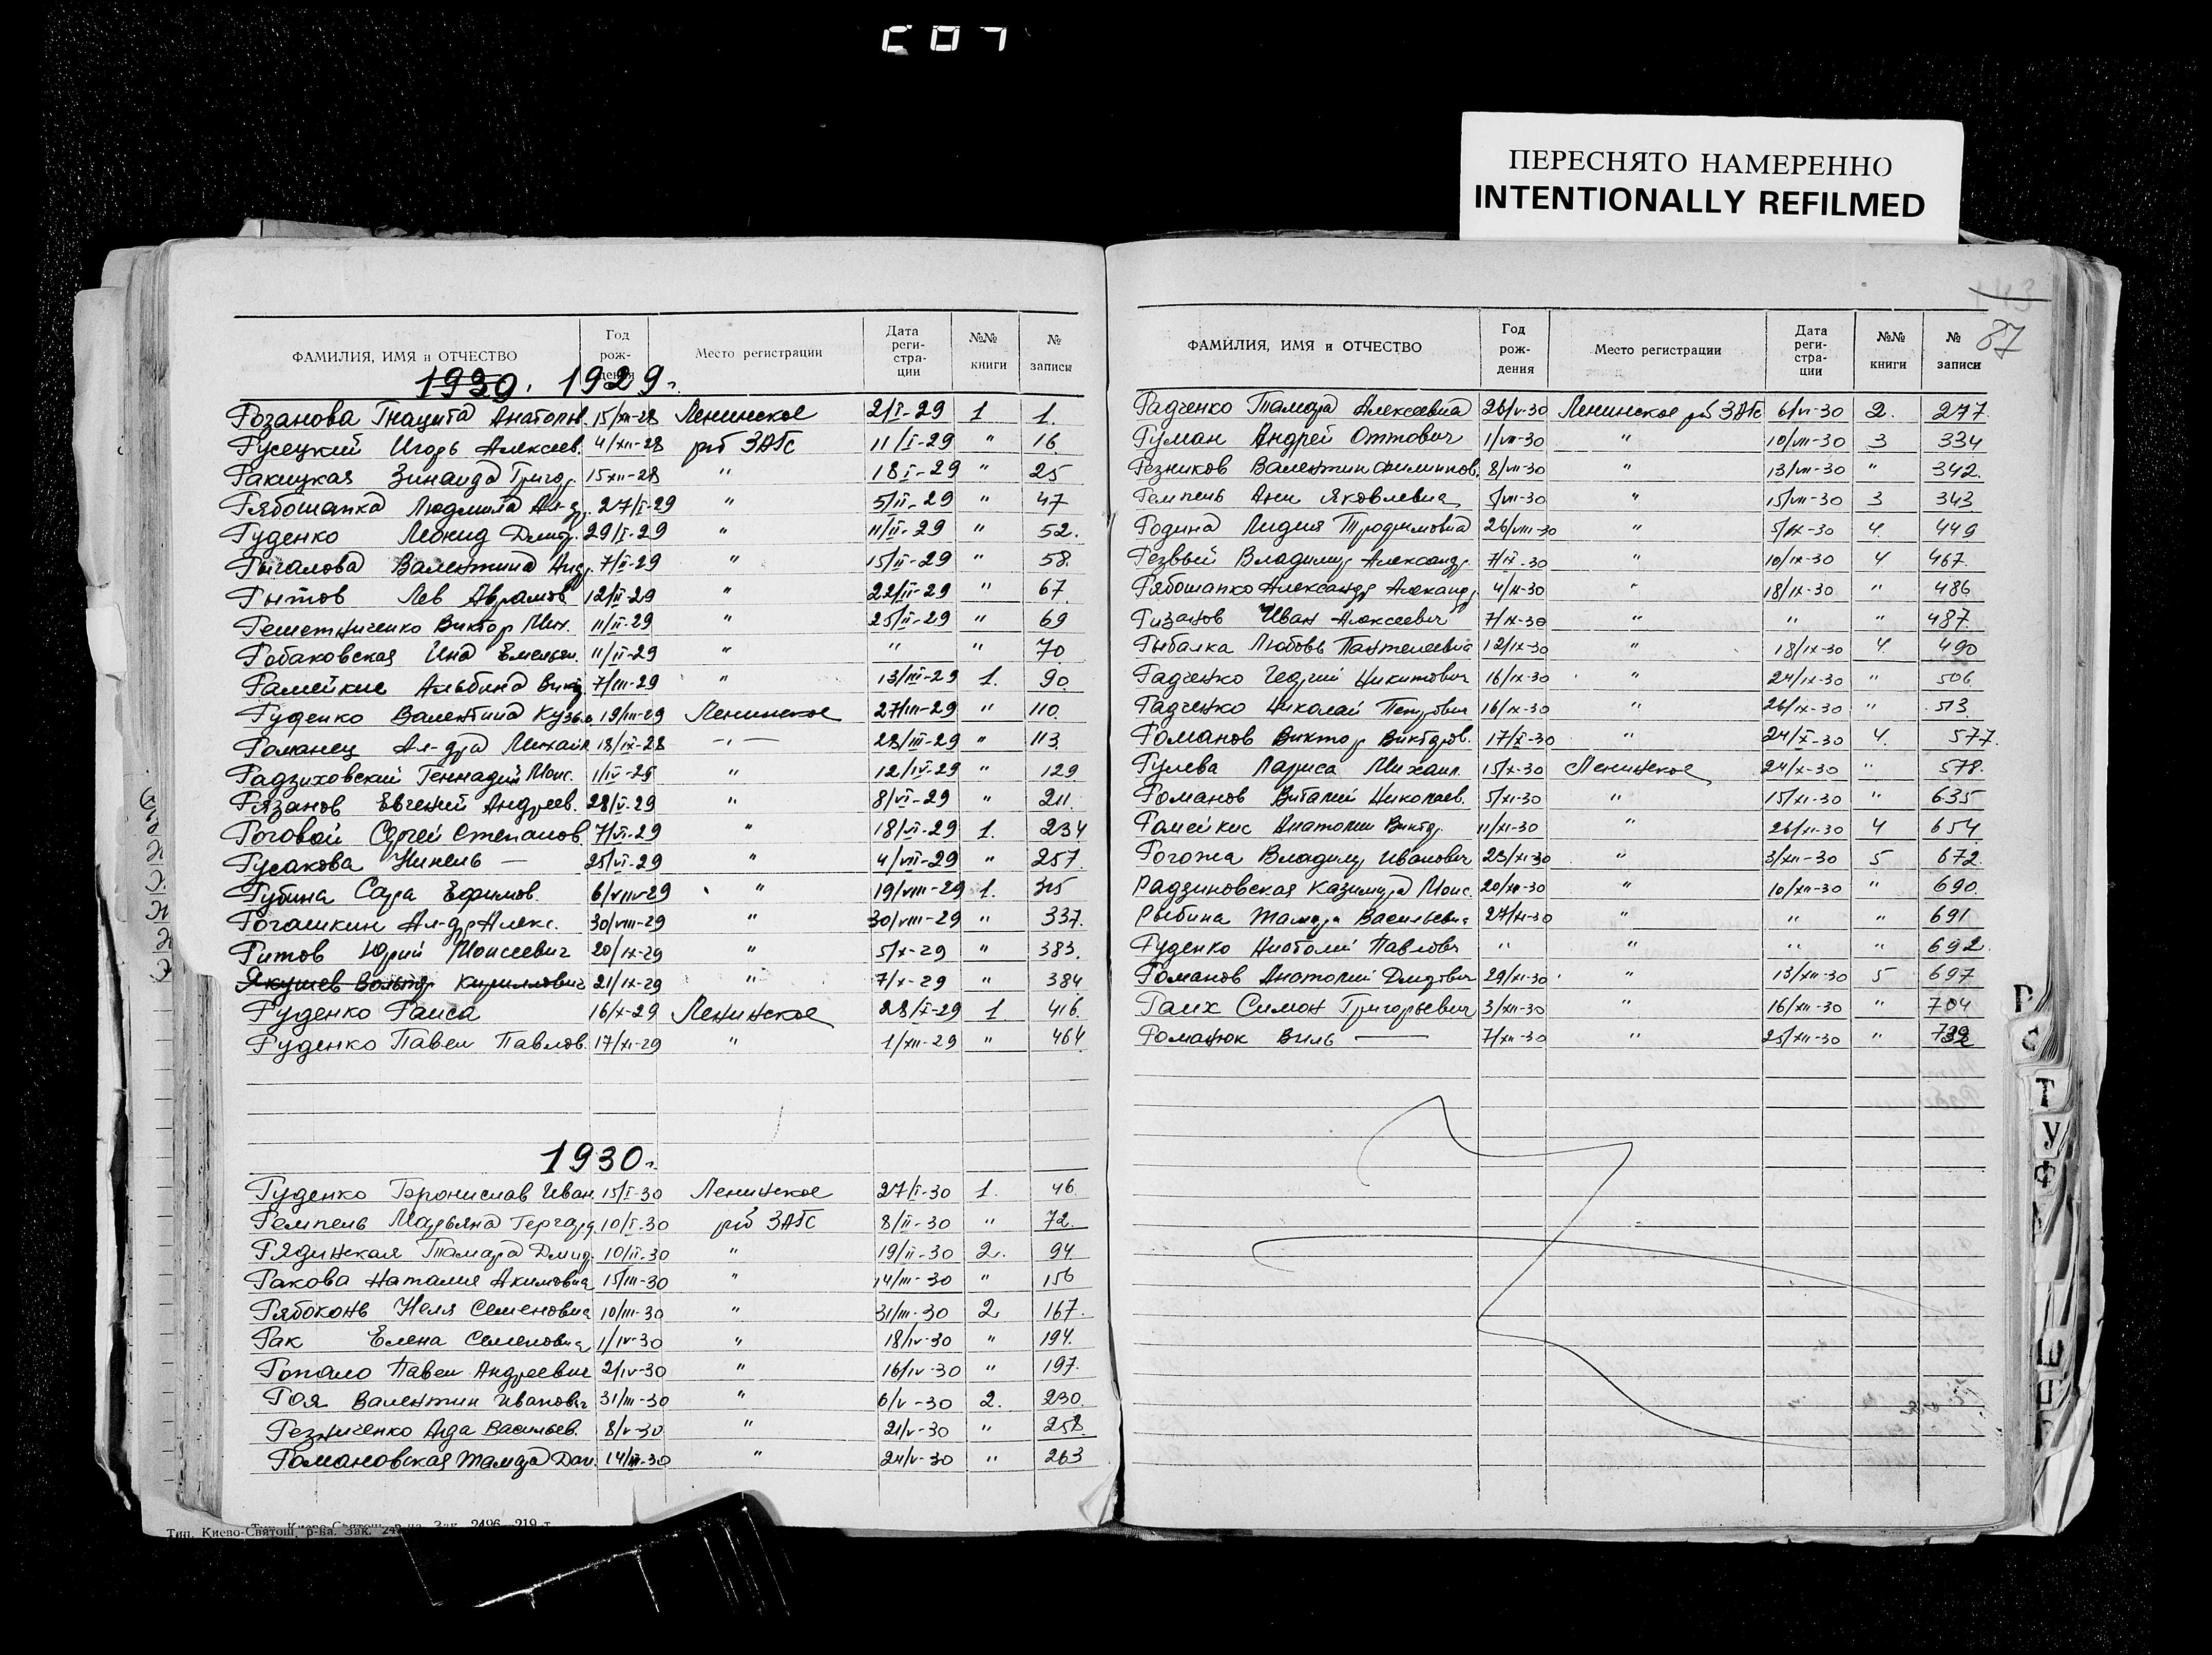 ПЕРЕСНЯТО НАМЕРЕННО
INTENTIONALLY REFILMED
ФАМИЛИЯ, ИМЯ и ОТЧЕСТВО Год рож-дения Место регистрации Дата реги-стра-ции №№ книги № записи
1930. 1929г.
Розанова Гиацита Анатольв. 15/XII-28 Ленинское 2/I-29 1 1.
Русецкий Игорь Алексеев. 4/XII-28 рб ЗАГс 11/I-29 " 16
Ракицкая Зинаида Григор. 15XII-28 " 18I-29 " 25
Рябошапка Людмила Ал-др. 27/I-29 " 5/II-29 " 47
Руденко Леонид Дмитр. 29/I-29 " 11/II-29 " 52.
Рыгалова Валентина Андр. 7/II-29 " 15/II-29 " 58.
Рытов Лев Абрамов 12/II-29 " 22/II-29 " 67
Решетниченко Виктор Мих. 11/II-29 " 25/II-29 " 69
Робаковская Ина Емельян. 11/II-29 " " " 70
Рамейкис Альбина Викт. 7/III-29 " 13/III-29 1. 90.
Руденко Валентина Кузьм. 19/III-29 Ленинское 27/III-29 " 110
Романец Ал-дра Михайл 18/IX-28 —"— 28/III-29 " 113
Радзиховский Геннадий Моис. 1/IV-26 " 12/IV-29 " 129
Рязанов Евгений Андреев. 28/V-29 " 8/VI-29 " 211
Роговой Сергей Степанов. 7/VI-29 " 18/VI-29 1. 234
Русакова Нинель — 25/VI-29 " 4/VII-29 " 257.
Рубина Сара Ефимов. 6/VIII-29 " 19/VIII-29 1. 315
Рогашкин Ал-др Алекс. 30/VIII-29 " 30/VIII-29 " 337.
Ритов Юрий Моисеевич 20/IX-29 " 5/X-29 " 383.
Якушев Кириллович 21/IX-29 " 7/X-29 " 384
Руденко Раиса 16/X-29 Ленинское 28/X-29 1. 416.
Руденко Павел Павлов. 17/XI-29 " 1/XII-29 " 464
1930г.
Руденко Бронислав Иван. 15/I-30 Ленинское 27/I-30 1. 46
Ремпель Марьяна Гергард 10/I-30 рб ЗАГс 8/II-30 " 72.
Рядинская Тамара Дмитр. 10/II-30 " 19/II-30 2. 94
Ракова Наталия Акимовна 15/III-30 " 14/III-30 " 156
Рябоконь Неля Семеновна 10/III-30 " 31/III-30 2. 167.
Рак Елена Семеновна 1/IV-30 " 18/IV-30 " 194.
Ропало Павел Андреевич 2/IV-30 " 16/IV-30 " 197.
Роя Валентин Иванович 31/III-30 " 6/V-30 2. 230.
Резниченко Аида Васильев. 8/V-30 " 21/V-30 " 258
Романовская Тамара Дан. 14/III-30 " 24/V-30 " 263
Тип. Киево-Святош. р-на. Зак. 2496—219 т
87
ФАМИЛИЯ, ИМЯ и ОТЧЕСТВО Год рож-дения Место регистрации Дата реги-стра-ции №№ книги № записи
Радченко Тамара Алексеевна 26/V-30 Ленинское рб ЗАГс 6/VI-30 2. 277.
Руман Андрей Оттович 1/VII-30 " 10/VII-30 3 334
Резников Валентин Филиппов. 8/VII-30 " 13/VII-30 " 342.
Ремпель Ани Яковлевна /VII-30 " 15/VII-30 3 343
Родина Лидия Трофимовна 26/VIII-30 " 5/IX-30 4. 449
Резвый Владимир Александр. 7/IX-30 " 10/IX-30 4 467.
Рябошапко Александр Александр 4/IX-30 " 18/IX-30 " 486
Ризанов Иван Алексеевич 7/IX-30 " " " 487.
Рыбалка Любовь Пантелеевна 12/IX-30 " 18/IX-30 4 490
Радченко Георгий Никитович 16/IX-30 " 24/IX-30 " 506
Радченко Николай Петрович 16/IX-30 " 26/IX-30 " 513
Романов Виктор Викторов. 17/X-30 " 24/X-30 4. 577.
Рулева Лариса Михаил. 15/X-30 Ленинское 24/X-30 " 578.
Романов Виталий Николаев. 5/XI-30 " 15/XI-30 " 635
Рамейкис Анатолий Виктор. 11/XI-30 " 26/XI-30 4 654
Рогожа Владимир Иванович 23/XI-30 " 3/XII-30 5 672.
Радзиновская Казимира Моис. 20/XI-30 " 10/XII-30 " 690.
Рыбина Тамара Васильевна 27/XI-30 " " " 691
Руденко Анатолий Павлович " " " " 692.
Романов Анатолий Дмитрович 29/XI-30 " 13/XII-30 5 697
Раих Симон Григорьевич 3/XII-30 " 16/XII-30 " 704
Романюк Виль — 7/XII-30 " 25/XII-30 "
Р
С
Т
У
Ф
Ш